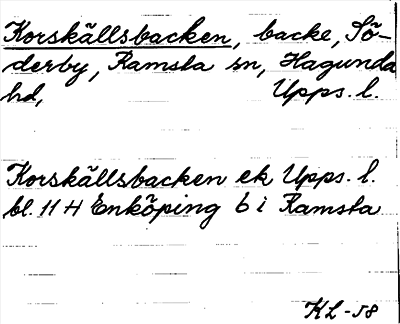 Korskällsbacken, backe, Sö-
derby, Ramsta sn, Hagunda
hd, Upps. l.
Korskällsbacken ek Upps. l.
bl. 11 H Enköping 6 i Ramsta
KL-58